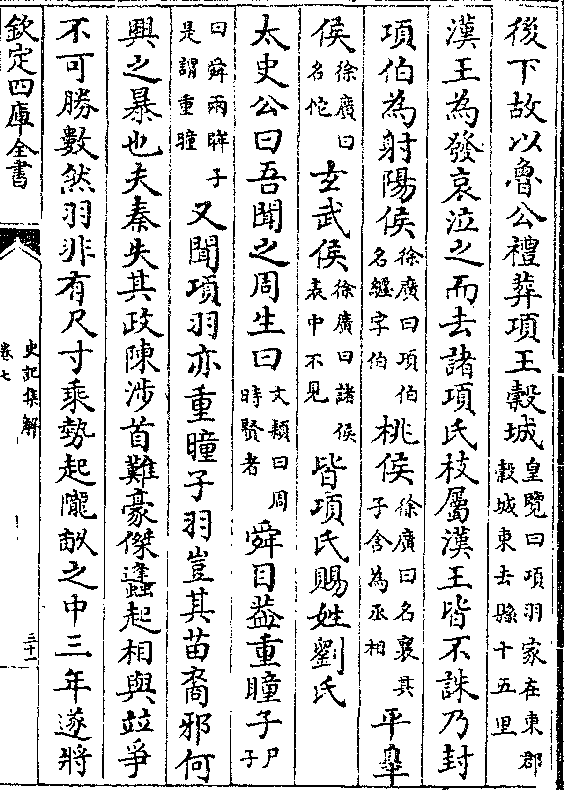 後下故以魯公禮葬項王穀城皇覽曰項羽冢在東郡穀城東去縣十五里
漢王為發哀泣之而去諸項氏枝屬漢王皆不誅乃封
項伯為射陽侯徐廣曰項伯名纒字伯桃侯徐廣曰名襄其子舍為丞相平臯
侯徐廣曰名佗玄武侯徐廣曰諸侯表中不見皆項氏賜姓劉氏
太史公曰吾聞之周生曰文穎曰周時賢者舜目葢重瞳子尸子
曰舜兩眸子是謂重瞳又聞項羽亦重瞳子羽豈其苗裔邪何
興之暴也夫秦失其政陳涉首難豪傑蠭起相與竝爭
不可勝數然羽非有尺寸乘勢起隴畝之中三年遂將
欽定四庫全書
史記集解
卷七
三十一